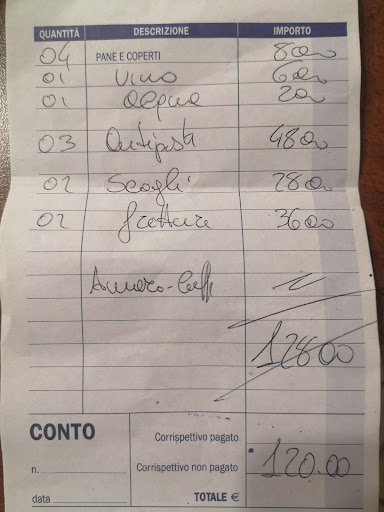 QUANTITÀ DESCRIZIONE IMPORTO
04 PANE E COPERTI 8,00
01 Vino 6,00
01 Acqua 2,00
03 Antipasti 48,00
02 Scogli 28,00
02 fritture 36,00
Amaro-Caffè
128,00
CONTO
Corrispettivo pagato
n. Corrispettivo non pagato 120.00
data TOTALE €